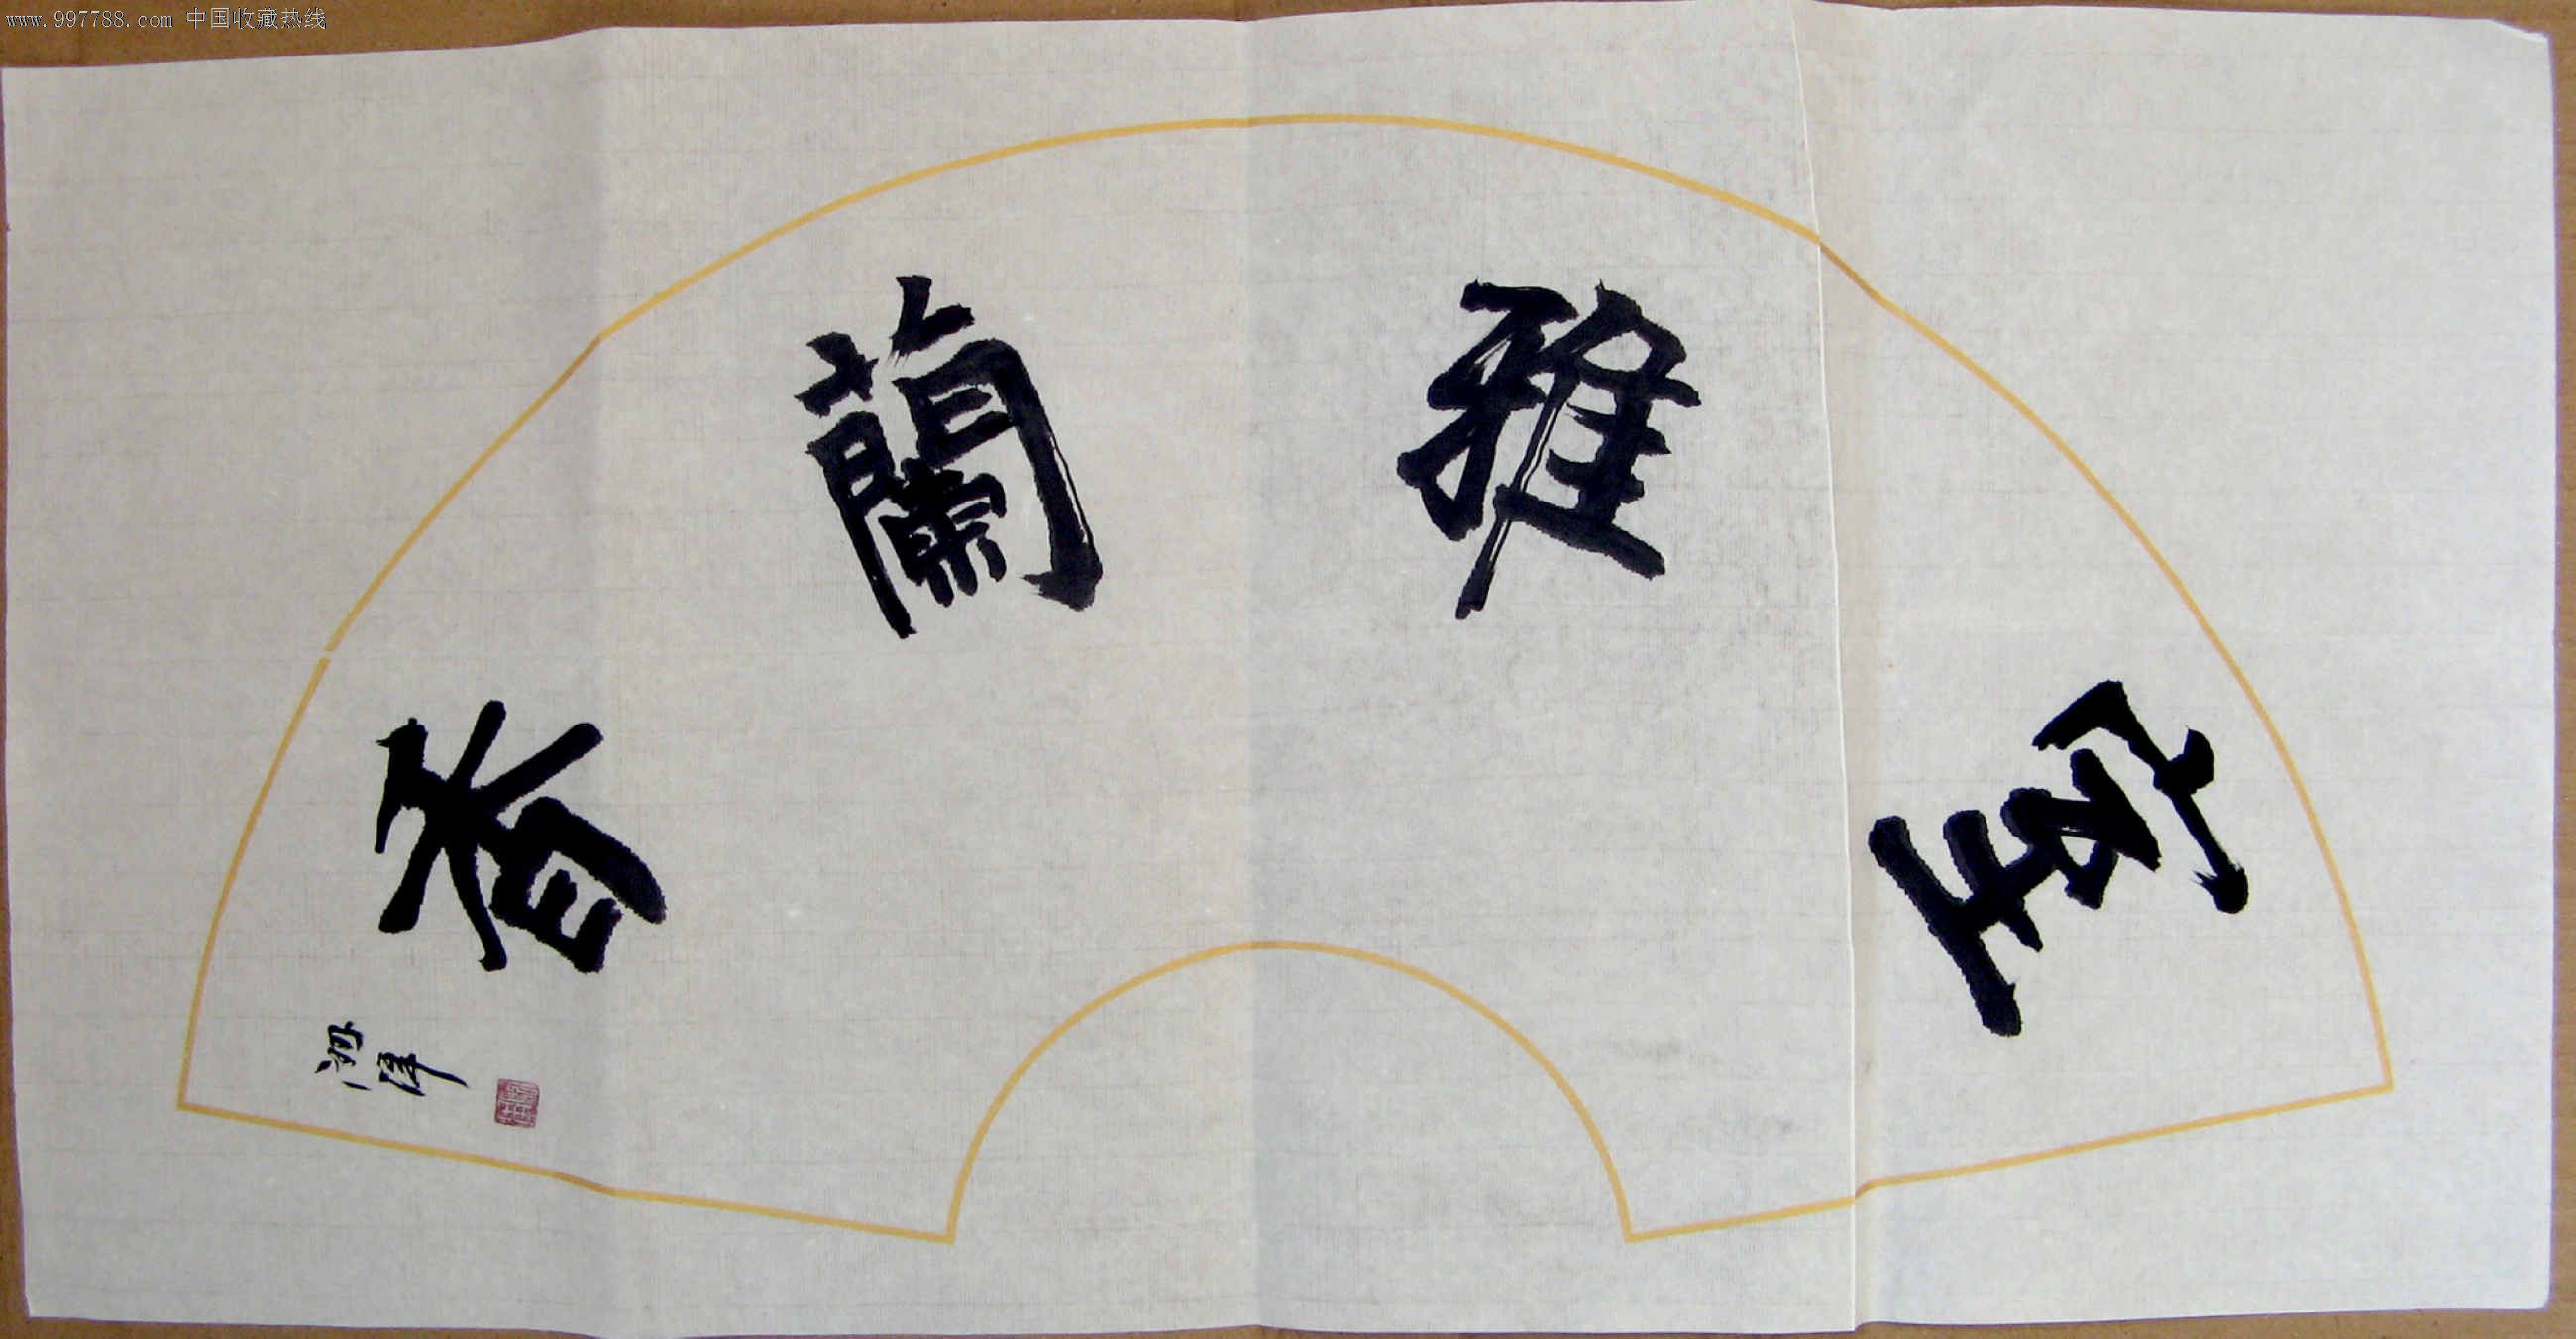 www.997788.com 中国收藏热线
室雅蘭香